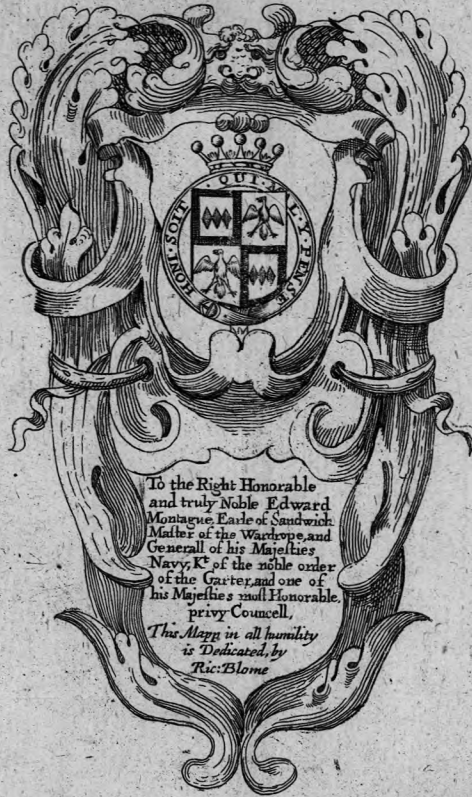 HONI · SOIT · QUI · MAL · Y · PENSE
To the Right Honorable
and truly Noble Edward
Montague, Earle of Sandwich
Master of the Wardrope, and
Generall of his Majesties
Navy, Kt. of the noble order
of the Garter, and one of
his Majesties most Honorable,
privy Councell,
This Mapp in all humility
is Dedicated, by
Ric: Blome